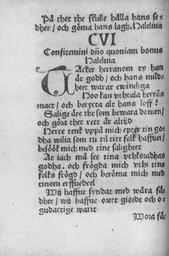 På thet the skulle hålla hans se-
dher / och göma hans lagh. Haleluia
CVI
Confitemini dño quoniam bonus
Haleluia
TAcker herranom ty han
är godh / och hans mildh
heet warar ewinnliga
Hoo kan vthtala herrās
macc / och beryta alt hans loff?
Salige äre the som bewara domen /
och göra thet rett är altijd
Herre tenk vppå mich epter tin go
dha wilia som tu til titt folk haffuer /
besöök mich med tine salighett
At iach må see tina vthkoradhas
godha. och frögda mich vthi tins
folks frögd / och berömma mich med
tinom erffuedeel
Wij haffue syndat med wåra fä
dher / wij haffue orett giordt och o
gudactige warit
Wora fä